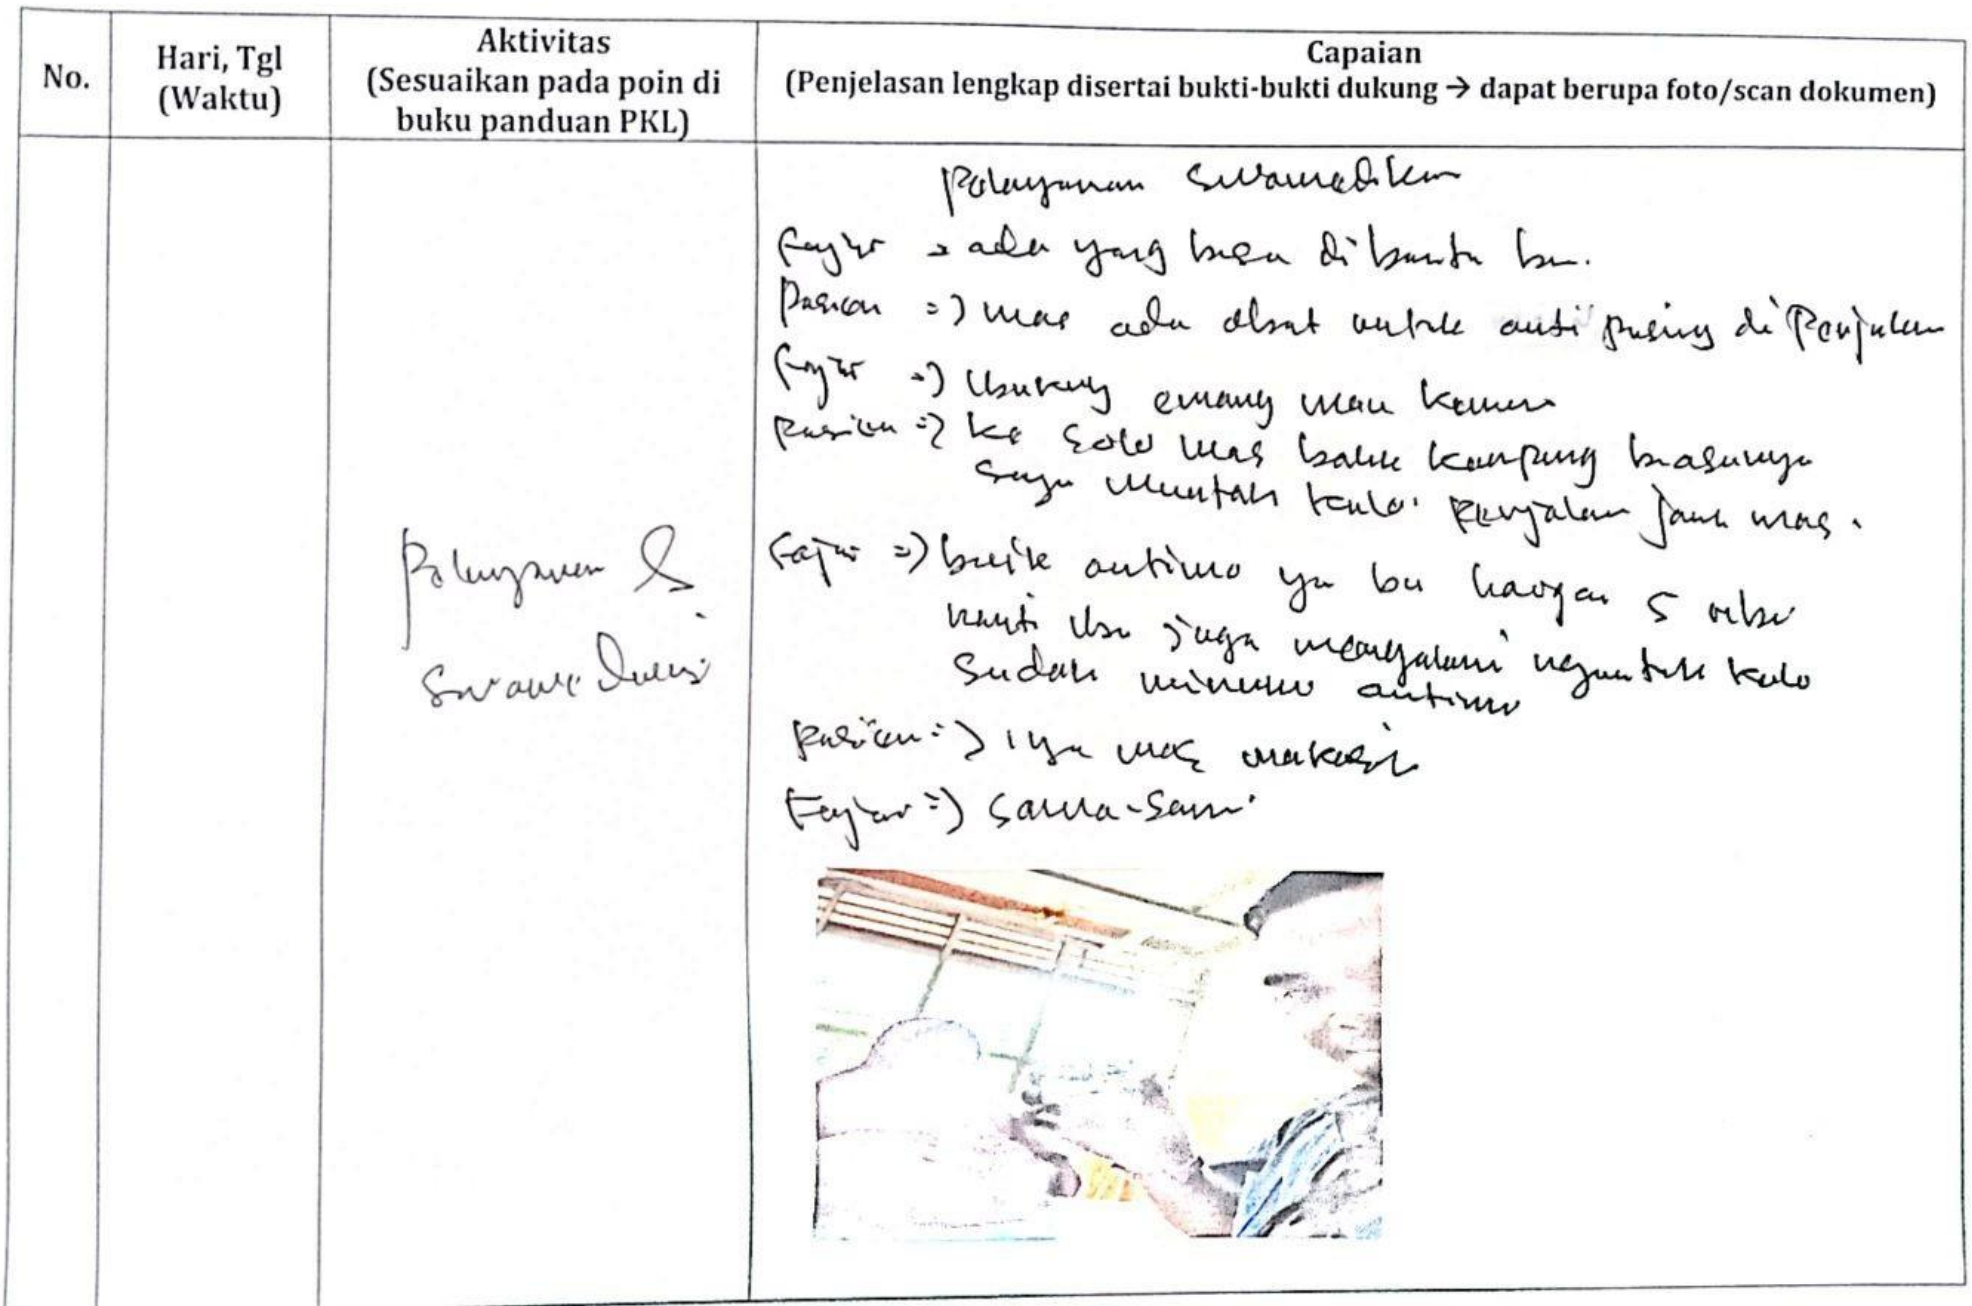 No.
Hari, Tgl
(Waktu)
Aktivitas
(Sesuaikan pada poin di
buku panduan PKL)
Capaian
(Penjelasan lengkap disertai bukti-bukti dukung → dapat berupa foto/scan dokumen)
Pelayanan
Pelayanan Swamedikasi
Fajar => ada yang bisa di bantu bu.
Pasien => mas ada obat untuk anti pusing di Perjalan
Fajar => emang mau kemana
Pasien => ke Solo mas balik kampung biasanya
saya muntah kalo perjalan jauh mas.
Fajar => baik antimo ya bu harga 5 ribu
nanti ibu juga mengalami ngantuk kalo
Sudah minum antimo
Pasien => iya mas makasih
Fajar => sama-sama
Swamedikasi